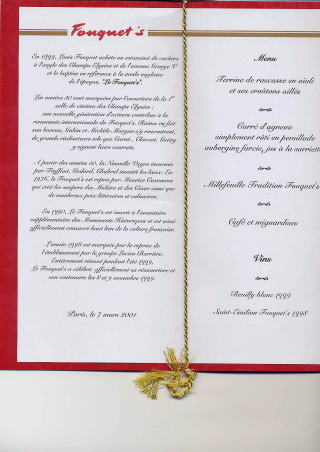 Fouquet's
En 1899, Louis Fouquet achète un estaminet de cochers
à l'angle des Champs Elysées et de l'avenue George V
et le baptise en référence à la mode anglaise
de l'époque, "Le Fouquet's".
Les années 30 sont marquées par l'ouverture de la 1ère
salle de cinéma des Champs Elysées ;
une nouvelle génération d'acteurs contribue à la
renommée internationale du Fouquet's. Raimu en fait
son bureau, Gabin et Michèle Morgan s'y rencontrent,
de grands réalisateurs tels que Carné, Clouzot, Guitry
y régnent leurs contrats.
A partir des années 50, la Nouvelle Vague incarnée
par Truffaut, Godard, Chabrol investit les lieux. En
1976, le Fouquet's est repris par Maurice Casanova
qui crée les soupers des Molières et des César ainsi que
de nombreux prix littéraires et culinaires.
En 1990, Le Fouquet's est inscrit à l'inventaire
supplémentaire des Monuments Historiques et est ainsi
officiellement consacré haut lieu de la culture française.
L'année 1998 est marquée par la reprise de
l'établissement par le groupe Lucien Barrière.
Entièrement rénové pendant l'été 1999,
Le Fouquet's a célébré officiellement sa réouverture et
son centenaire les 8 et 9 novembre 1999.
Paris, le 7 mars 2001
Menu
Terrine de rascasse en aïoli
et ses croûtons aillés
Carré d'agneau
simplement rôti en persillade
aubergine farcie, jus à la sarriette
Millefeuille Tradition Fouquet's
Café et mignardises
Vins
Reuilly blanc 1999
Saint-Emilion Fouquet's 1998